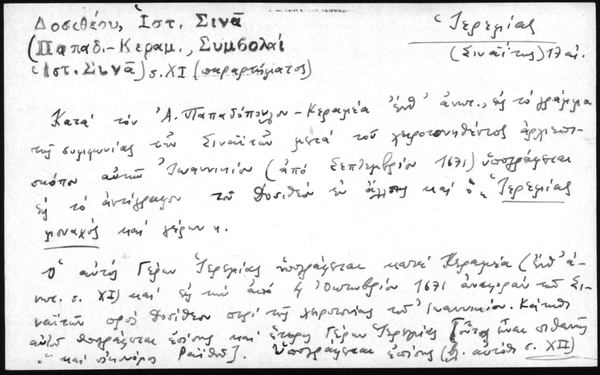 Δοσιθέου, Ἱστ. Σινᾶ
(Παπαδ.-Κεραμ., Συμβολαί
Ἱστ. Σινᾶ) σ. XI (παραρτήματος)
Ἱερεμίας
(Σιναΐτης) 17 αἰ.
Κατά τόν Ἀ. Παπαδόπουλον-Κεραμέα ἔνθ' ἀνωτ., εἰς τό γράμμα
τῆς συμφωνίας τῶν Σιναϊτῶν μετά τοῦ χειροτονηθέντος ἀρχιεπι-
σκόπου αὐτῶν Ἰωαννικίου (ἀπό Σεπτεμβρίου 1671) ὑπογράφεται
εἰς τό ἀντίγραφον τοῦ Δοσιθέου ἐν ἄλλοις καί ὁ Ἱερεμίας
μοναχός καί γέρων
Ὁ αὐτός Γέρων Ἱερεμίας ὑπογράφεται κατά Κεραμέα (ἔνθ' ἀ-
νωτ. σ. XI) καί εἰς τήν ἀπό 4 Ὀκτωβρίου 1671 ἀναφοράν τῶν Σι-
ναϊτῶν πρός Δοσίθεον περί τῆς χειροτονίας τοῦ Ἰωαννικίου.
ὑπογράφεται ἐπίσης καί ἕτερος Γέρων Ἱερεμίας
καί οἰκονόμος Ραϊθοῦ]. Ὑπογράφεται ἐπίσης αὐτόθι σ. XII)